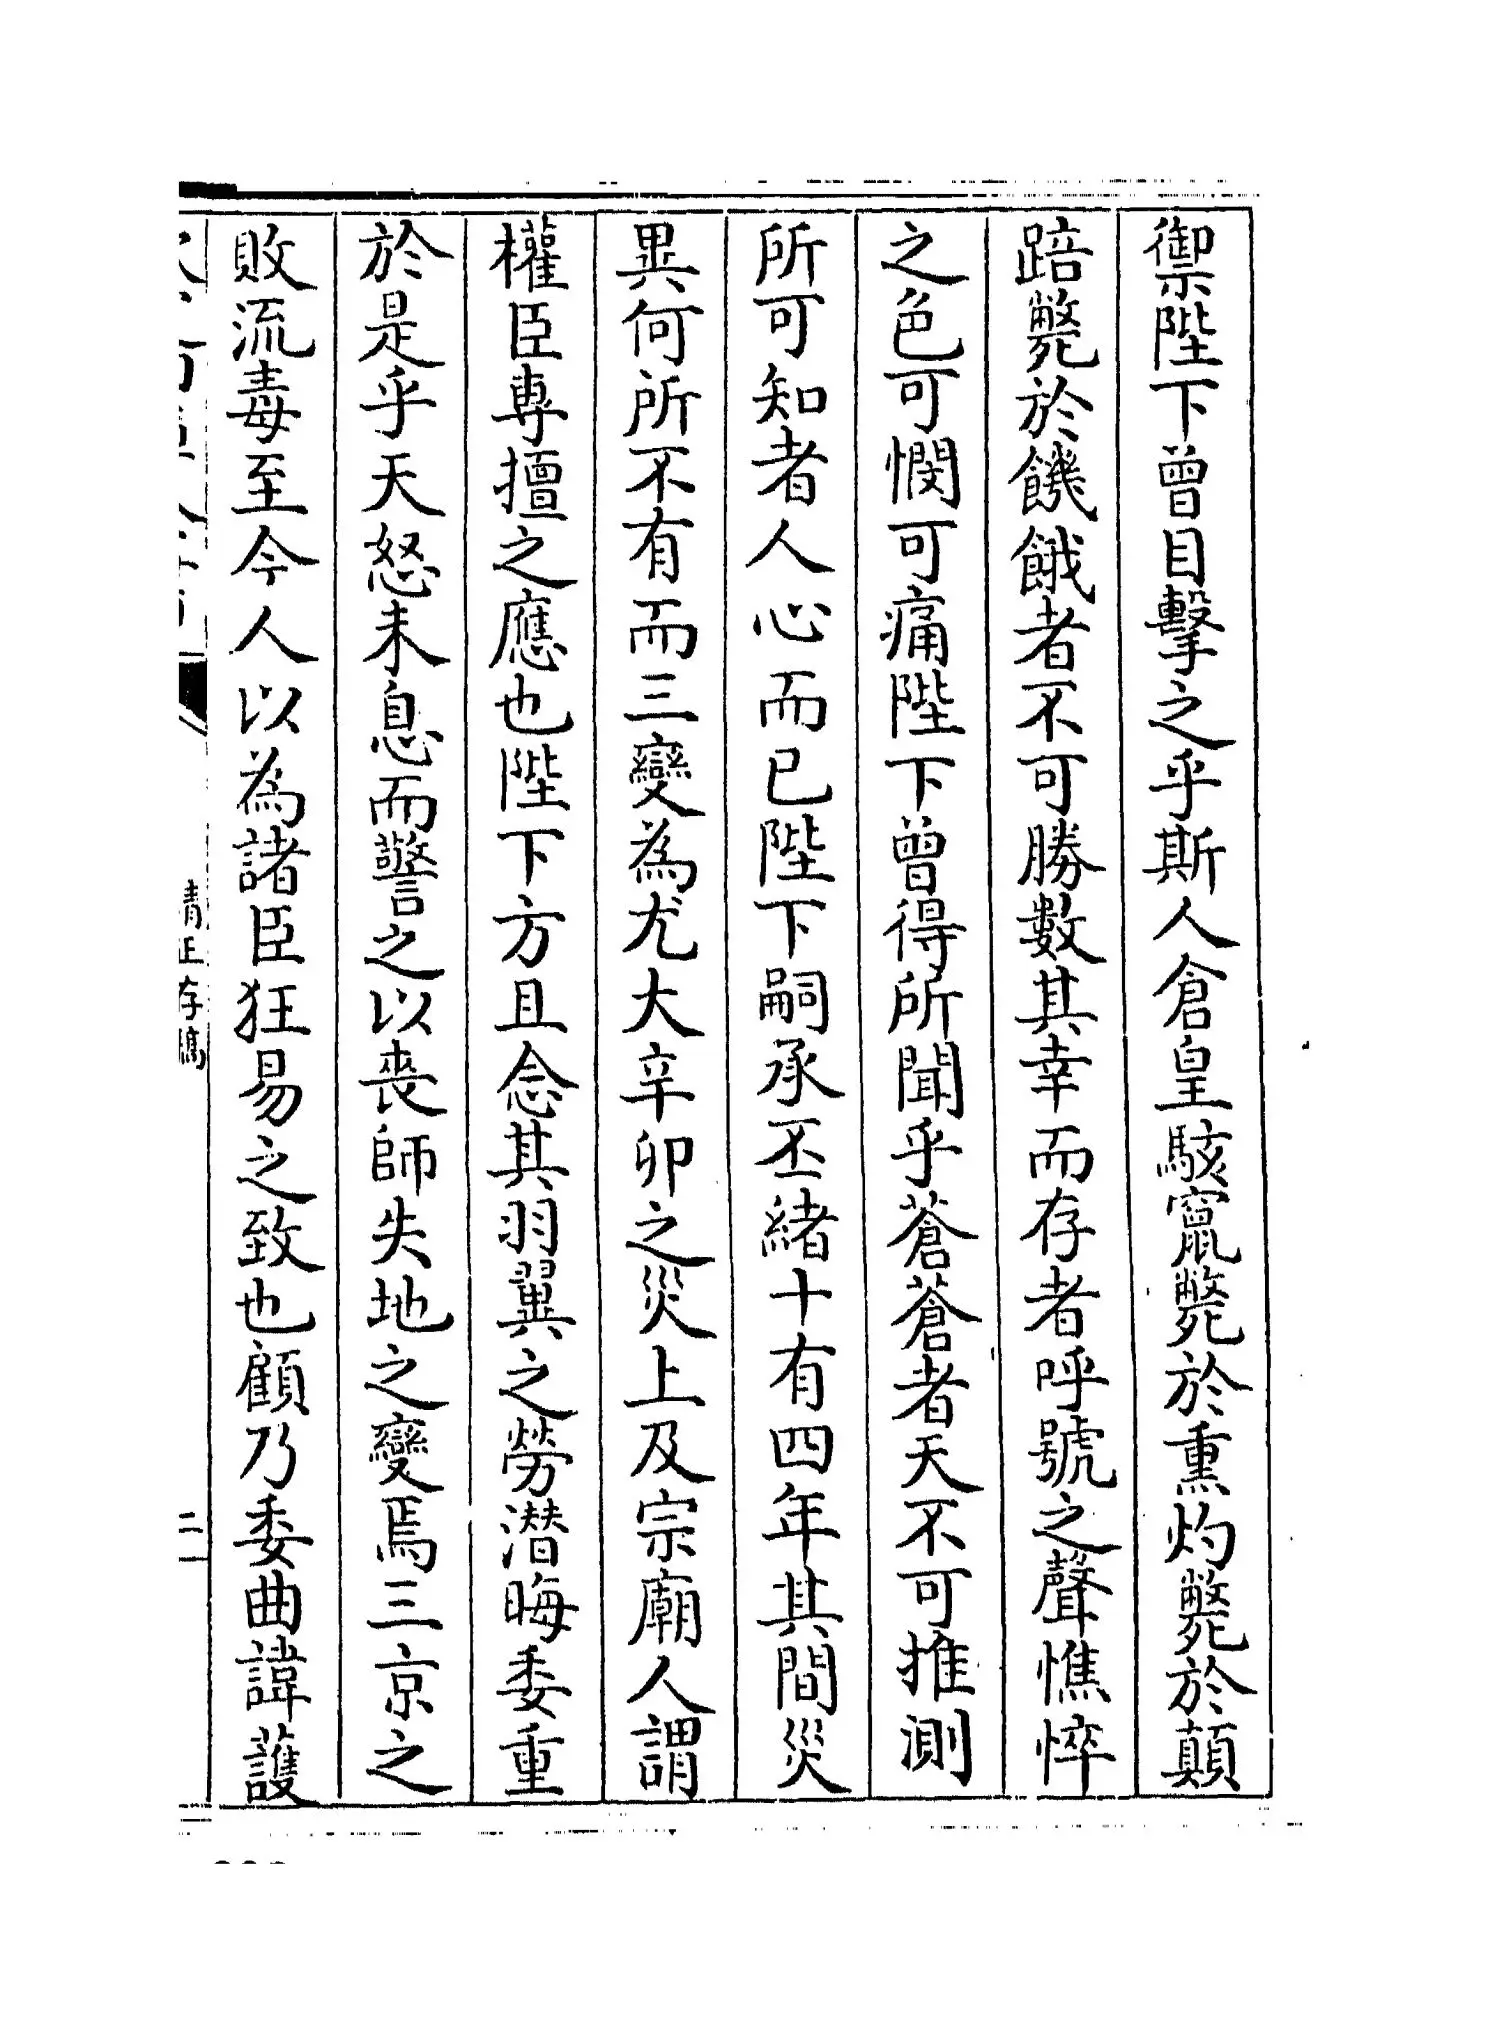 禦陛下曾目擊之乎斯人倉皇駭竄斃於熏灼斃於顛
踣斃於饑餓者不可勝數其幸而存者呼號之聲憔悴
之色可憫可痛陛下曾得所聞乎蒼蒼者天不可推測
所可知者人心而已陛下嗣承丕緒十有四年其間災
異何所不有而三變為尤大辛卯之災上及宗廟人謂
權臣專擅之應也陛下方且念其羽翼之勞潛晦委重
於是乎天怒未息而警之以喪師失地之變焉三京之
敗流毒至今人以為諸臣狂易之致也顧乃委曲諱護
清正存稿